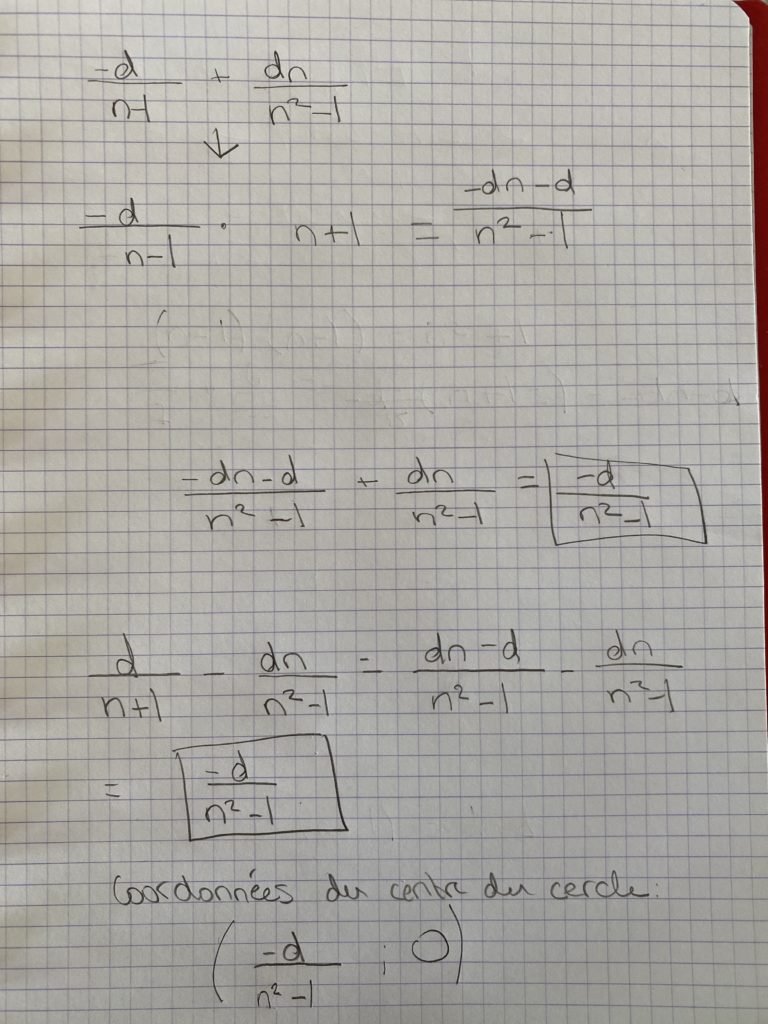 -d/(n-1) + dn/(n²-1)
↓
-d/(n-1) · n+1 = (-dn-d)/(n²-1)
(-dn-d)/(n²-1) + dn/(n²-1) = -d/(n²-1)
d/(n+1) - dn/(n²-1) = (dn-d)/(n²-1) - dn/(n²-1)
= -d/(n²-1)
Coordonnées du centre du cercle:
(-d/(n²-1) ; 0)